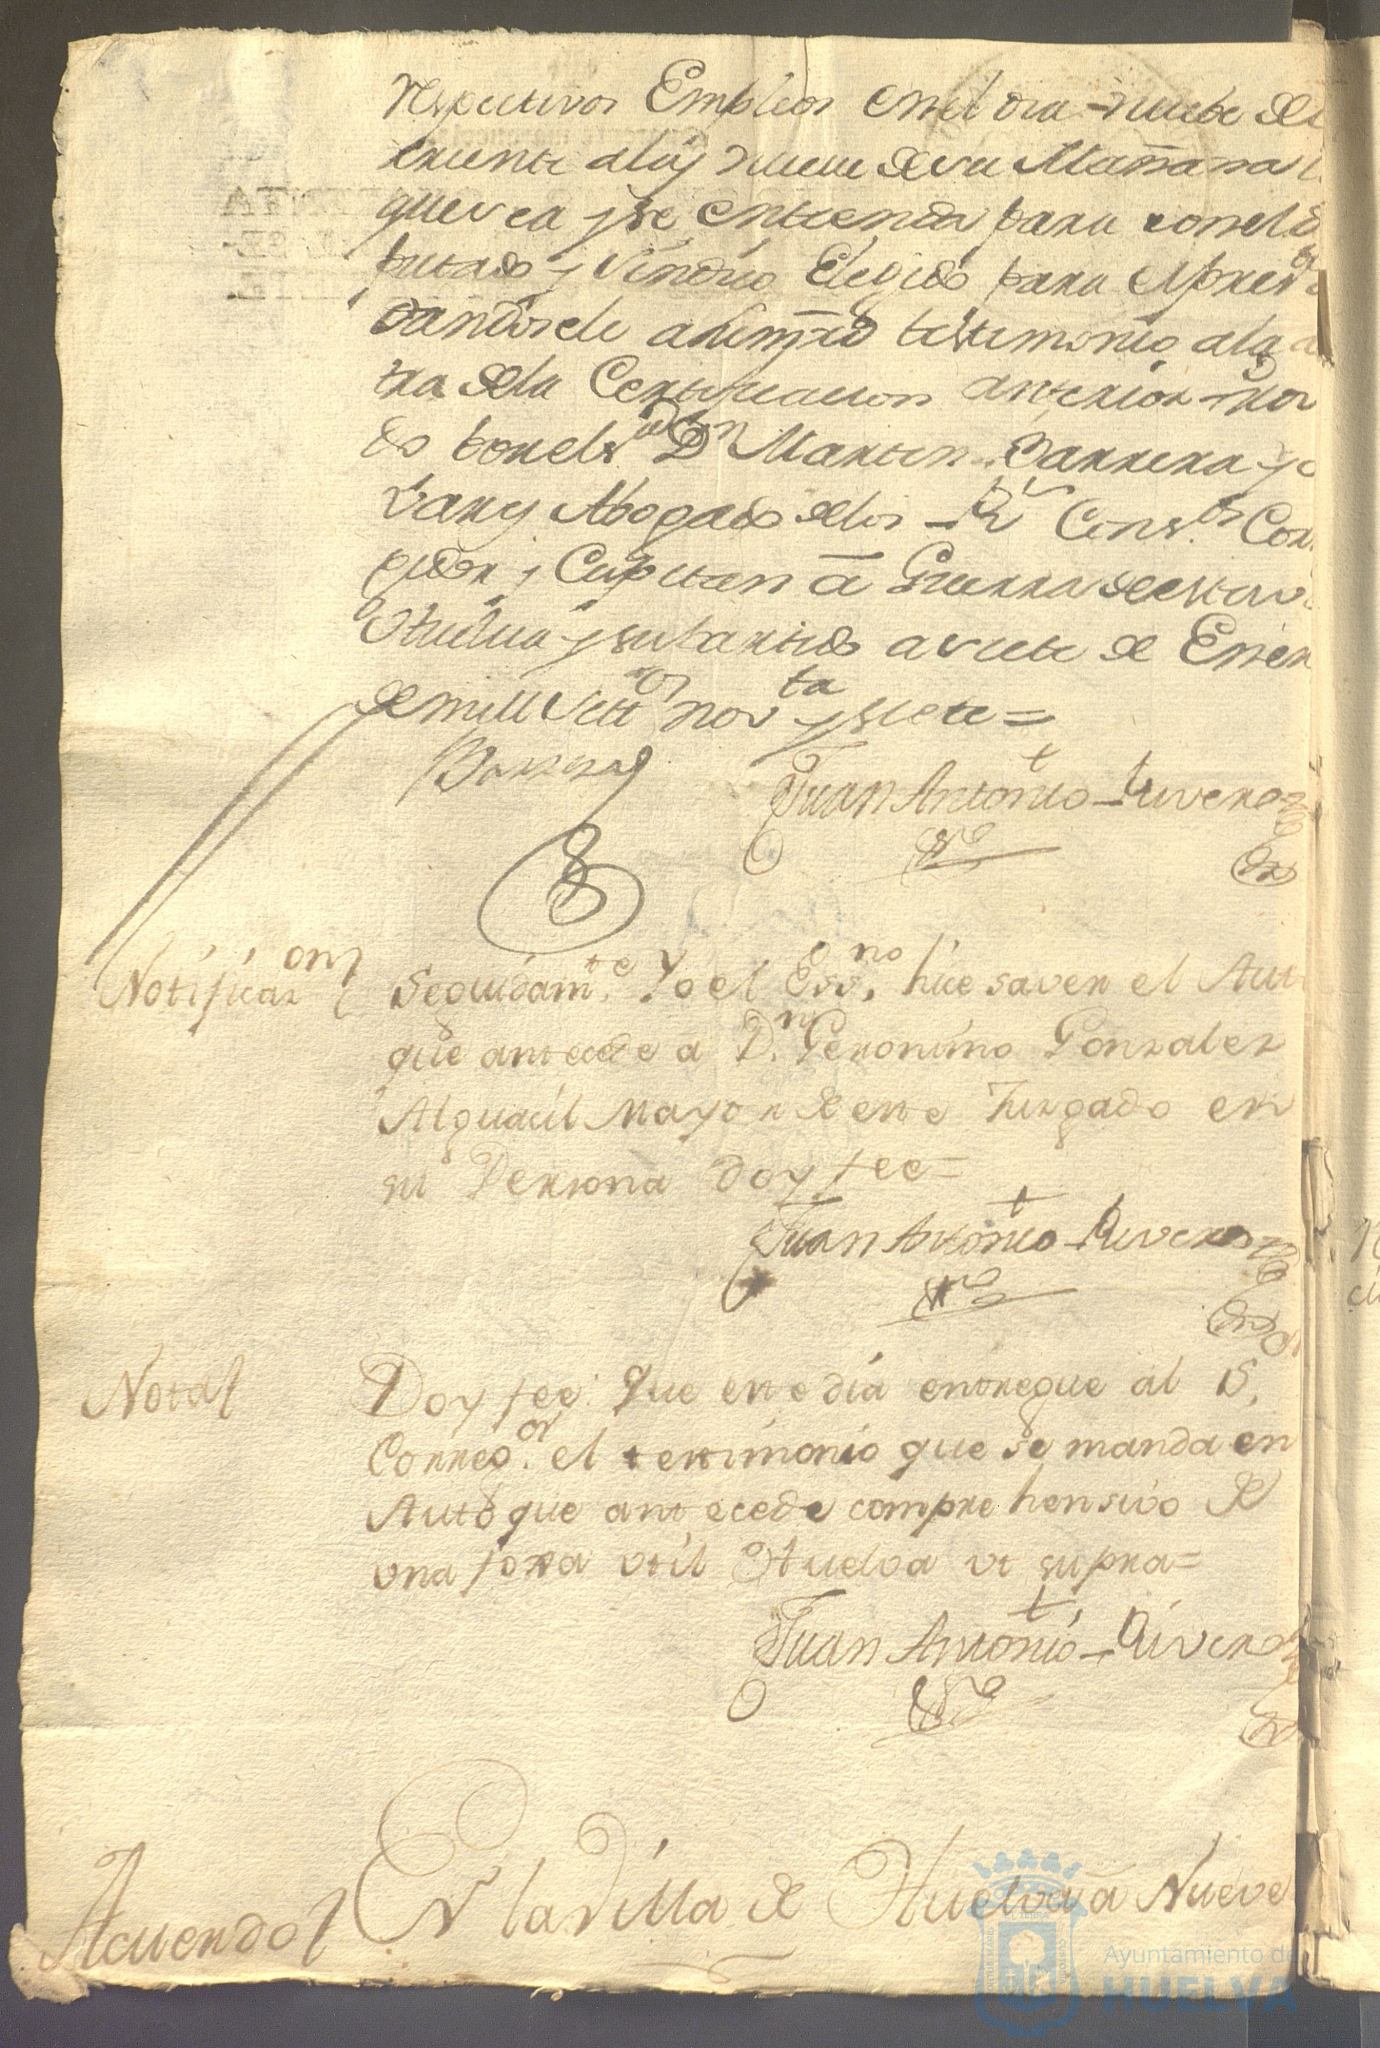 respectivos Empleos en el dia nuebe del
rriente a las nueve de su Mañana
que sea y se entienda para con el D
putado y Sindico Elegido para
dandosele a dho testimonio a la
tra de la Certificacion anterior
do por el sr. Dn Martin Barrera y
Abogado de los Rs Consos Corr
gidor y Capitan a Guerra de esta v
Huelva y su Partido a siete de Ener
de mill settos novta y siete =
Barrera
Juan Antonio Rivero
Notificazon
Seguidamte. Yo el Essno. hice saver el Auto
que antecede a Dn. Geronimo Gonzalez
Alguacil Mayor de este Juzgado en
su Persona doy fee =
Juan Antonio Rivero
Nota
Doy fee: Que este dia entregue al S.
Corregor. el testimonio que se manda en
Auto que antecede comprehensivo de
una foxa util Huelva ut supra =
Juan Antonio Rivero
Acuerdo
En la Villa de Huelva a Nueve
Ayuntamiento de
HUELVA